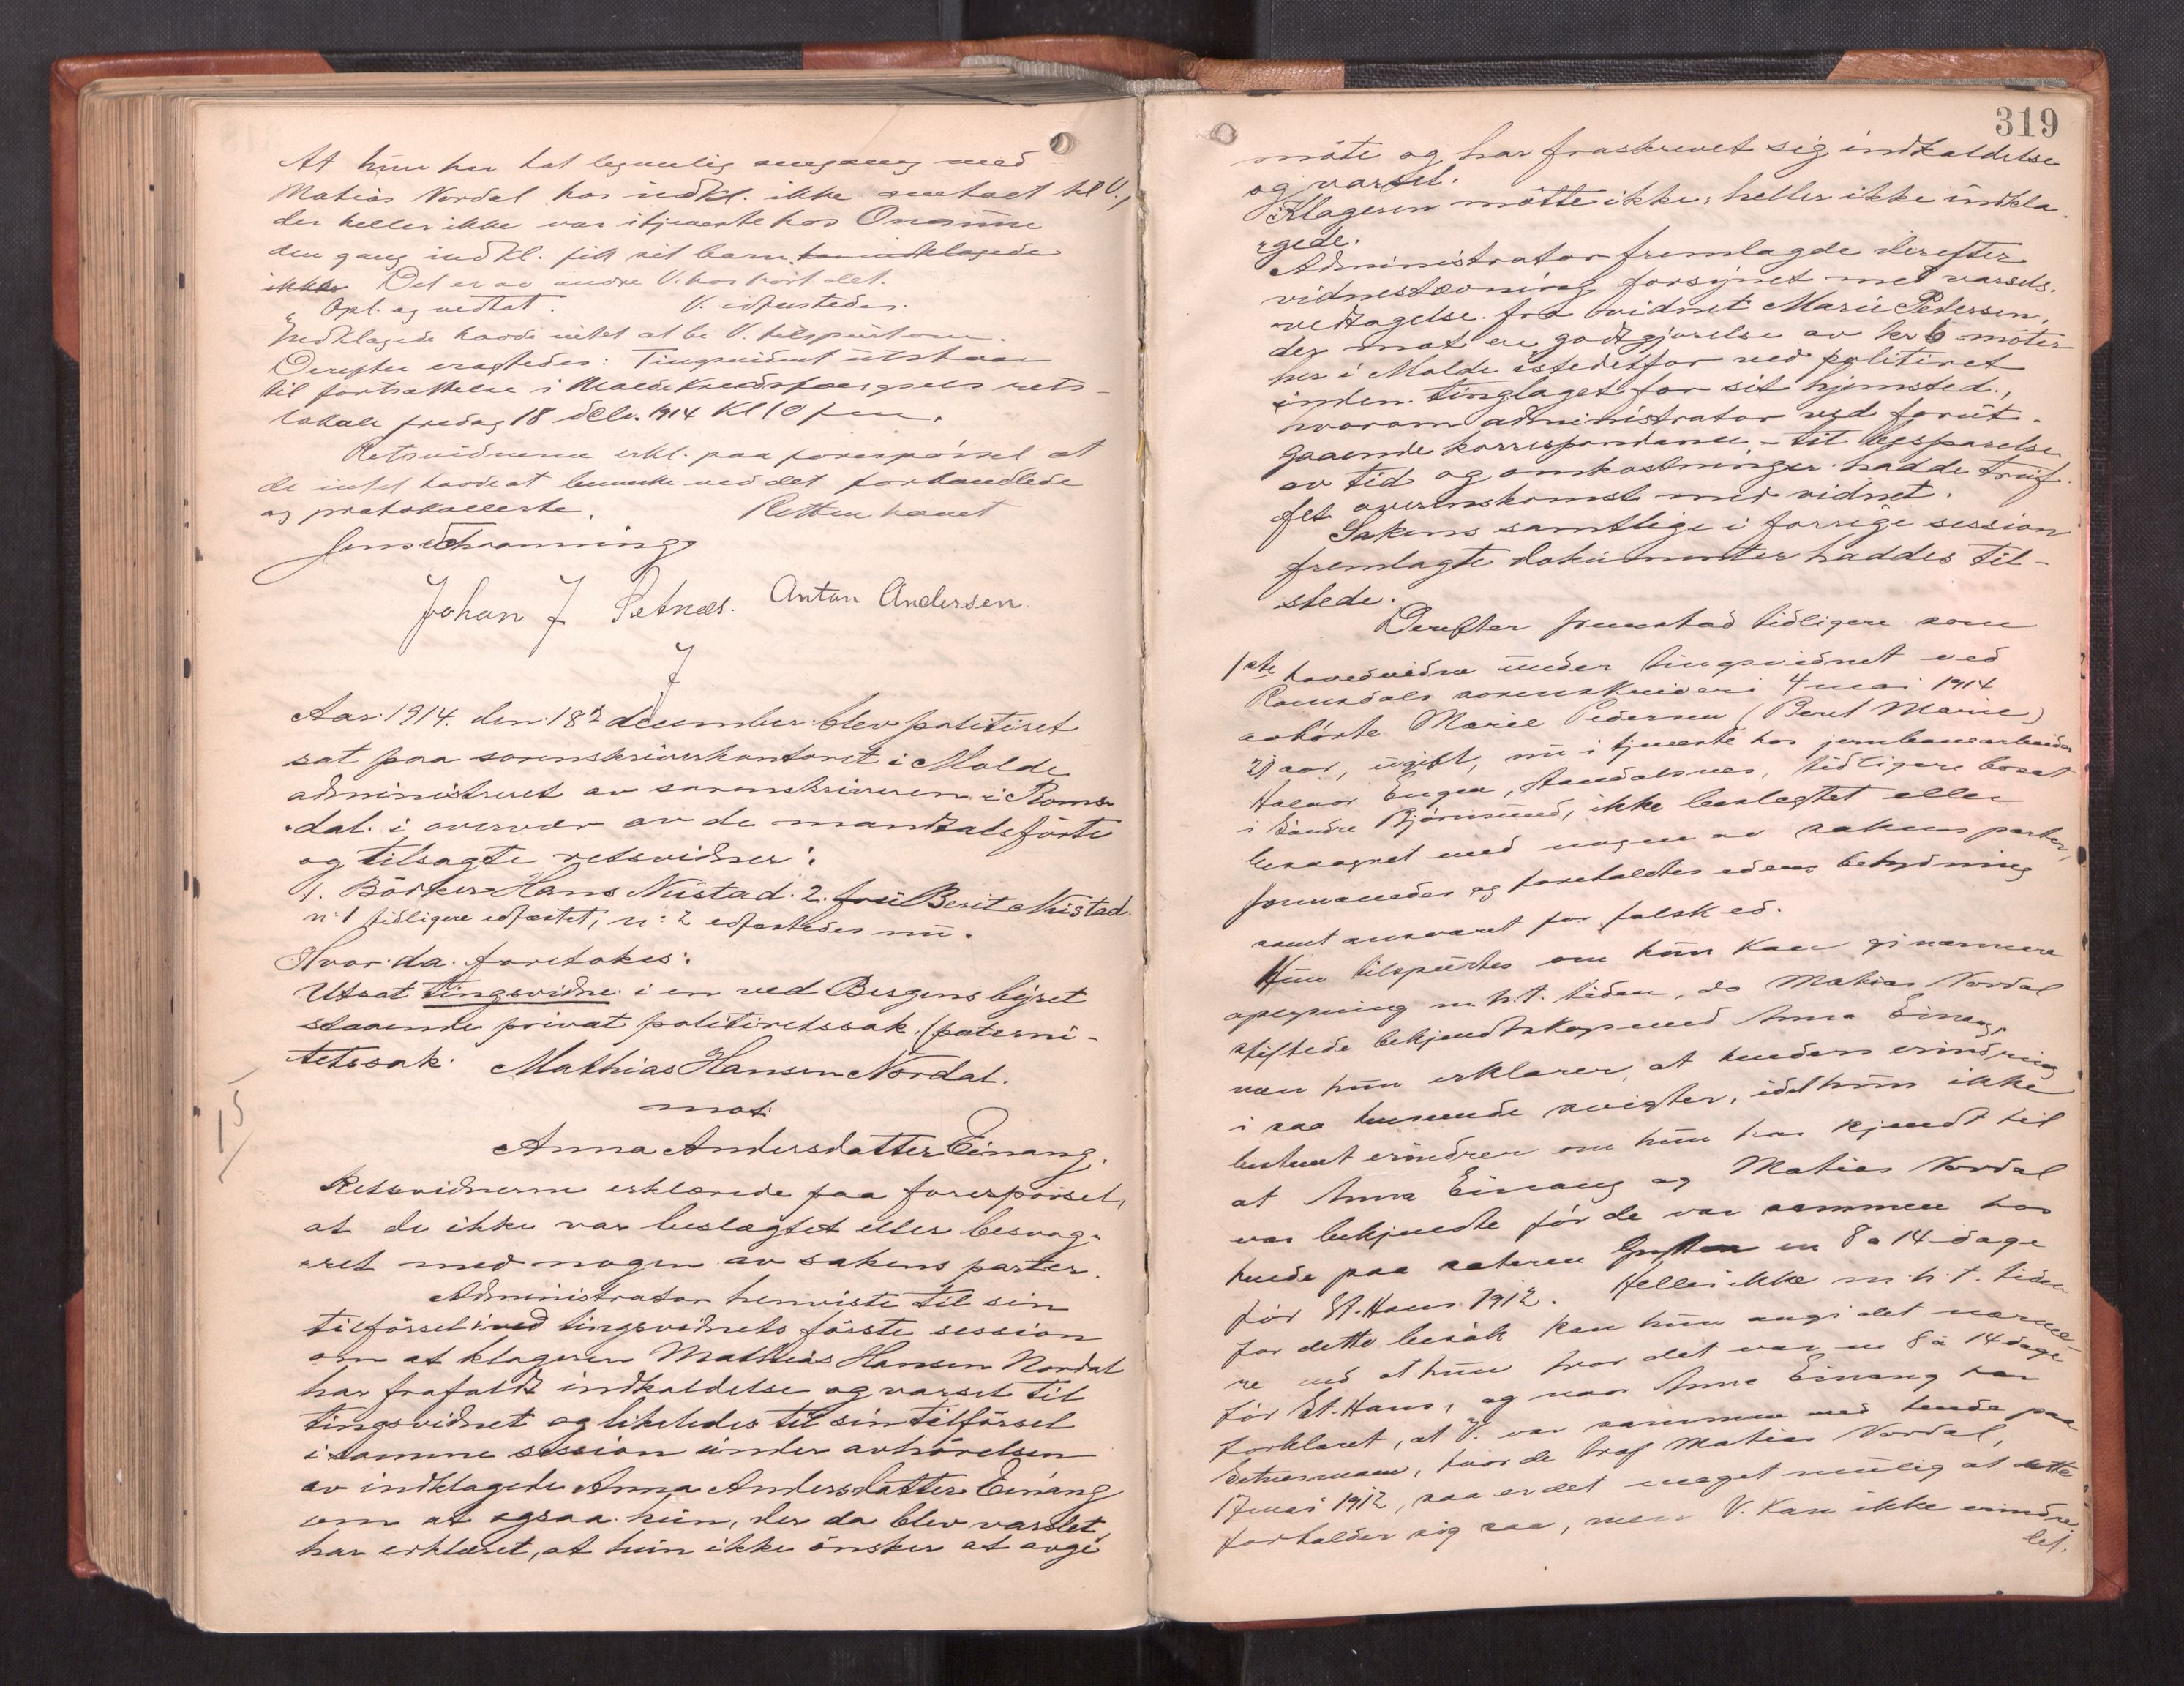 At hun har hat legemlig omgang med
Matias Nordal har indkl. ikke omtalt til V.,
der heller ikke var i tjeneste hos
den gang indkl. fik sit barn. har indklagede
ikke Det er av andre V. har hört det.
Opl. og vedtat. V. edfæstedes.
Indklagede havde intet at be V. tilspurt om.
Derefter eragtedes: Tingsvidnet utstaar
til fortsættelse i Molde kredsfængsels rets-
lokale fredag 18 decbr. 1914 kl 10 fm.
Retsvidnerne erkl. paa forespörsel at
de intet havde at bemerke ved det forhandlede
og protokollerte. Retten hævet
Johan J Setnes. Anton Andersen.
J
Aar 1914. den 18de december blev politiret
sat paa sorenskriverkontoret i Molde
administreret av sorenskriveren i Roms-
dal i overvær av de mandtalsförte
og tilsagte retsvidner:
1. Bödker Hans Nistad. 2. fru Berit Nistad.
n: 1 tidligere edfæstet, n: 2 edfæstedes nu.
Hvor da foretokes:
Utsat tingsvidne i en ved Bergens byret
staaende privat politiretssak (paterni-
tetssak. Mathias Hansen Nordal.
mot
Anna Andersdatter Einang.
15
Retsvidnerne erklærede paa forespörsel,
at de ikke var beslægtet eller besvog-
ret med nogen av sakens parter.
Administrator henviste til sin
tilförsel i ved tingsvidnets förste session
om at klageren Mathias Hansen Nordal
har frafaldt indkaldelse og varsel til
tingsvidnet og likeledes til sin tilförsel
i samme session under avhörelsen
av indklagede Anna Andersdatter Einang
om at ogsaa hun, der da blev varslet,
har erklæret, at hun ikke önsker at avgi
319
möte og har fraskrevet sig indkaldelse
og varsel.
Klageren mötte ikke, heller ikke indkla-
gede.
Administrator fremlagde derefter
vidnestævning forsynet med varsels-
vedtagelse fra vidnet Marie Pedersen,
der mot en godtgjörelse av kr 6 möter
her i Molde istedetfor ved politiret
inden tinglaget for sit hjemsted,
hvorom administrator ved forut-
gaaende korrespondance - til besparelse
av tid og omkostninger hadde truf-
fet overenskomst med vidnet.
Sakens samtlige i forrige session
fremlagte dokumenter haddes til-
stede.
Derefter fremstod tidligere som
1ste hovedvidne under tingsvidnet ved
Romsdals sorenskriveri 4 mai 1914
avhörte Marie Pedersen (Beret Marie)
21 aar, ugift, nu i tjeneste hos jernbanearbeider
Halvor Engen, Aandalsnes, tidligere bosat
i Söndre Björnsund, ikke beslegtet eller
besvogret med nogen av sakens parter,
formanedes og foreholdtes edens betydning
samt ansvaret for falsk ed.
Hun tilspurtes om hun kan gi nærmere
oplysning m.h.t. tiden, da Matias Nordal
stiftede bekjendtskap med Anna Einang,
men hun erklærer, at hendes erindring
i saa henseende svigter, idet hun ikke
bestemt erindrer om hun har kjendt til
at Anna Einang og Matias Nordal
var bekjendte för de var sammen hos
hende paa sæteren en 8 a 14 dage
för St. Hans 1912. Heller ikke m.h.t. tiden
for dette besök kan hun angi det nærme-
re end at hun tror det var en 8 à 14 dage
för St. Hans, og naar Anna Einang har
forklaret, at V. var sammen med hende paa
Setnesmoen, hvor de traf Matias Nordal,
17 mai 1912, saa er det meget mulig at dette
forholder sig saa, men V. kan ikke erindre
det.